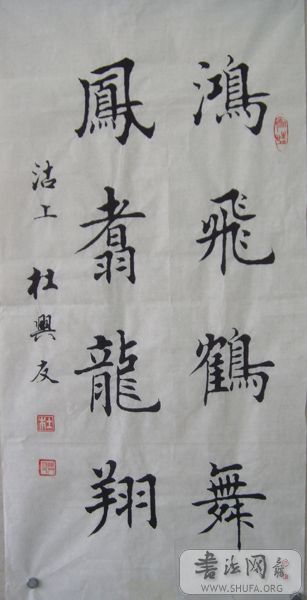 鴻飛鶴舞
鳳翥龍翔
沽上 杜興友
書法网
WWW.SHUFA.ORG